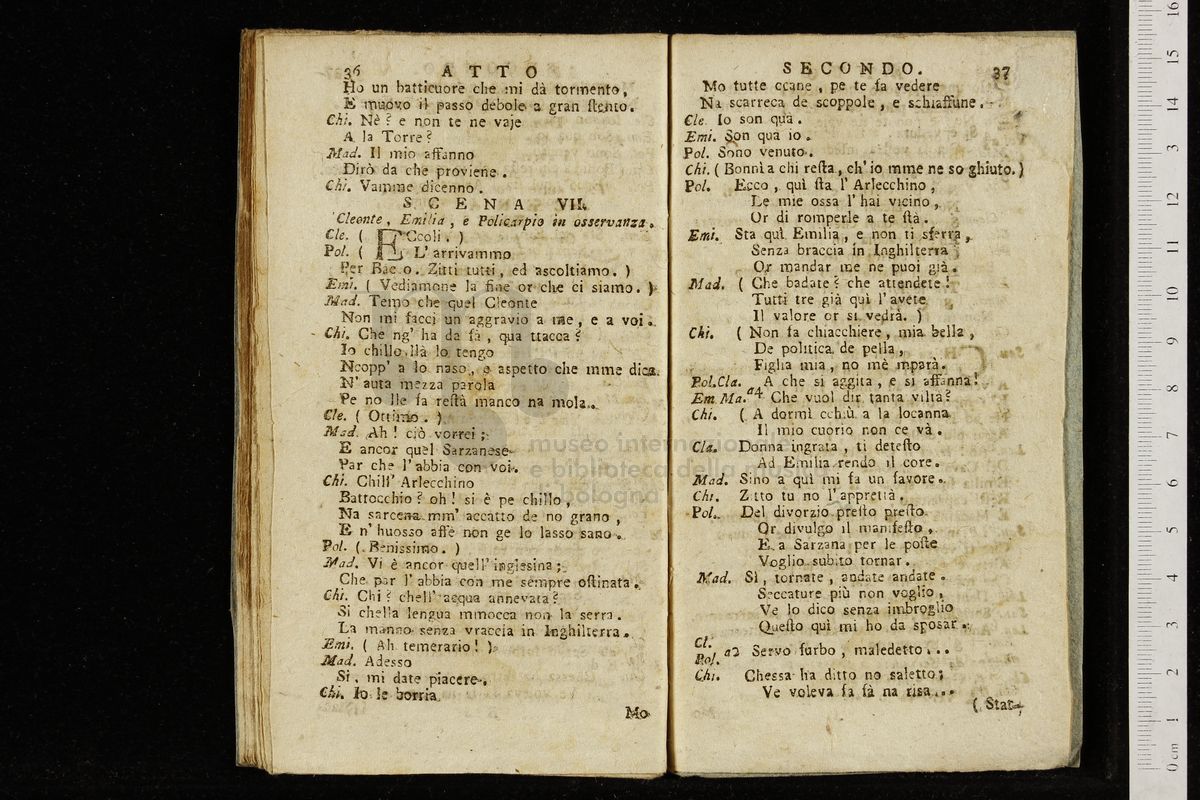 36 ATTO
Ho un batticuore che mi dà tormento,
E muovo il passo debole a gran ſtento.
Chi. Nè? e non te ne vaje
A la Torre?
Mad. Il mio affanno
Dirò da che proviene.
Chi. Vamme dicenno.
SCENA VII.
Cleonte, Emilia, e Policarpio in osservanza.
Cle. ( ECcoli. )
Pol. ( L' arrivammo
Per Bacco. Zitti tutti, ed ascoltiamo. )
Emi. ( Vediamone la fine or che ci siamo. )
Mad. Temo che quel Cleonte
Non mi facci un aggravio a me, e a voi.
Chi. Che ng' ha da fà, qua ttacca?
Io chillo llà lo tengo
Ncopp' a lo naso, e aspetto che mme dica
N' auta mezza parola
Pe no lle fa reſtà manco na mola.
Cle. ( Ottimo. )
Mad. Ah! ciò vorrei;
E ancor quel Sarzanese
Par che l' abbia con voi.
Chi. Chill' Arlecchino
Battocchio? oh! si è pe chillo,
Na sarcena mm' accatto de no grano,
E n' huosso affè non ge lo lasso sano.
Pol. ( Benissimo. )
Mad. Vi è ancor quell' inglesina;
Che par l' abbia con me sempre oſtinata.
Chi. Chi? chell' acqua annevata?
Si chella lengua mmocca non la serra.
La manno senza vraccia in Inghilterra.
Emi. ( Ah temerario! )
Mad. Adesso
Si, mi date piacere.
Chi. Io le borria
Mo
SECONDO. 37
Mo tutte ccane, pe te fa vedere
Na scarreca de scoppole, e schiaffune.
Cle. Io son quà.
Emi. Son qua io.
Pol. Sono venuto.
Chi. ( Bonnìa chi reſta, ch' io mme ne so ghiuto. )
Pol. Ecco, quì ſta l' Arlecchino,
Le mie ossa l' hai vicino,
Or di romperle a te ſtà.
Emi. Sta quì Emilia, e non ti sferra,
Senza braccia in Inghilterra
Or mandar me ne puoi già.
Mad. ( Che badate? che attendete!
Tutti tre già quì l' avete
Il valore or si vedrà. )
Chi. ( Non fa chiacchiere, mia bella,
De politica de pella,
Figlia mia, no mè mparà.
Pol.Cla. A che si aggita, e si affanna!
Em.Ma. a4 Che vuol dir tanta viltà?
Chi. ( A dormì cchiù a la locanna
Il mio cuorio non ce và.
Cla. Donna ingrata, ti deteſto
Ad Emilia rendo il core.
Mad. Sino a quì mi fa un favore.
Chi. Zitto tu no l' apprettà.
Pol. Del divorzio preſto preſto
Or divulgo il manifeſto,
E a Sarzana per le poſte
Voglio subito tornar.
Mad. Sì, tornate, andate andate.
Seccature più non voglio,
Ve lo dico senza imbroglio
Queſto quì mi ho da sposar.
Cl.
Pol. a2 Servo furbo, maledetto...
Chi. Chessa ha ditto no saletto;
Ve voleva fa fà na risa...
( Stat-